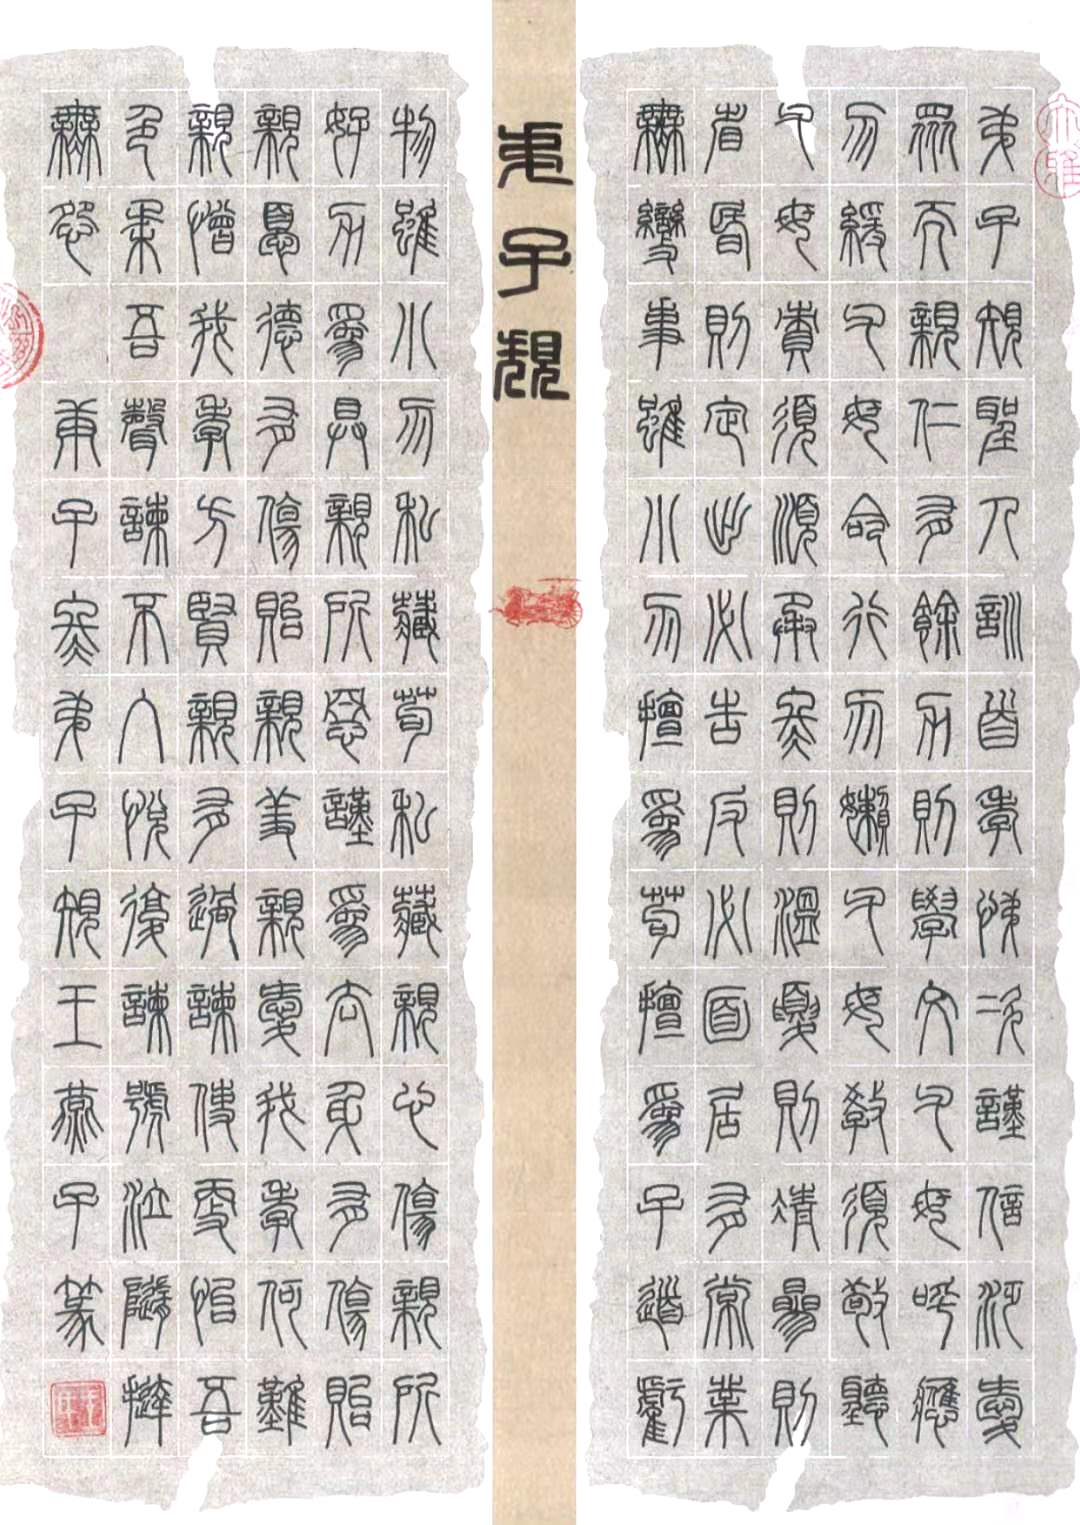 弟子規聖人訓首孝悌次謹信汎愛
眾而親仁有餘力則學文父母呼應
勿緩父母命行勿懶父母教須敬聽
父母責須順承冬則溫夏則凊晨則
省昏則定出必告反必面居有常業
無變事雖小勿擅為苟擅為子道虧
弟子規
物雖小勿私藏苟私藏親心傷親所
好力為具親所惡謹為去身有傷貽
親憂德有傷貽親羞親愛我孝何難
親憎我孝方賢親有過諫使更怡吾
色柔吾聲諫不入悅復諫號泣隨撻
無怨 庚子冬弟子規王燕子篆